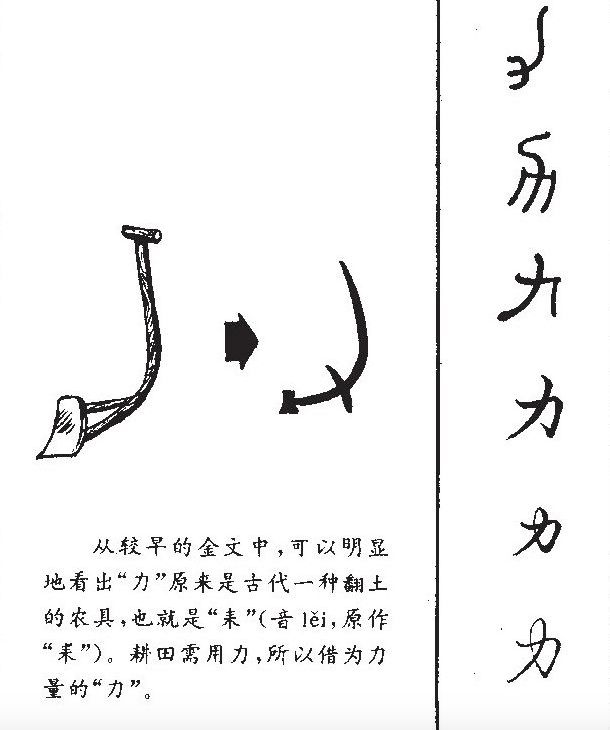 从较早的金文中,可以明显
地看出“力”原来是古代一种翻土
的农具,也就是“耒”(音lěi,原作
“耒”)。耕田需用力,所以借为力
量的“力”。
力
力
力
力